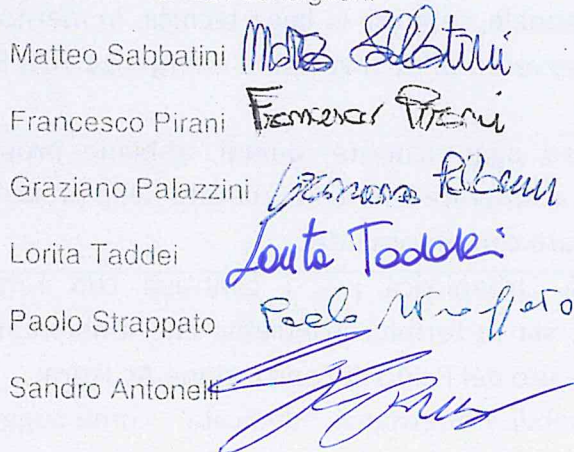 Matteo Sabbatini Matteo Sabbatini
Francesco Pirani Francesco Pirani
Graziano Palazzini
Lorita Taddei Lorita Taddei
Paolo Strappato Paolo Strappato
Sandro Antonelli